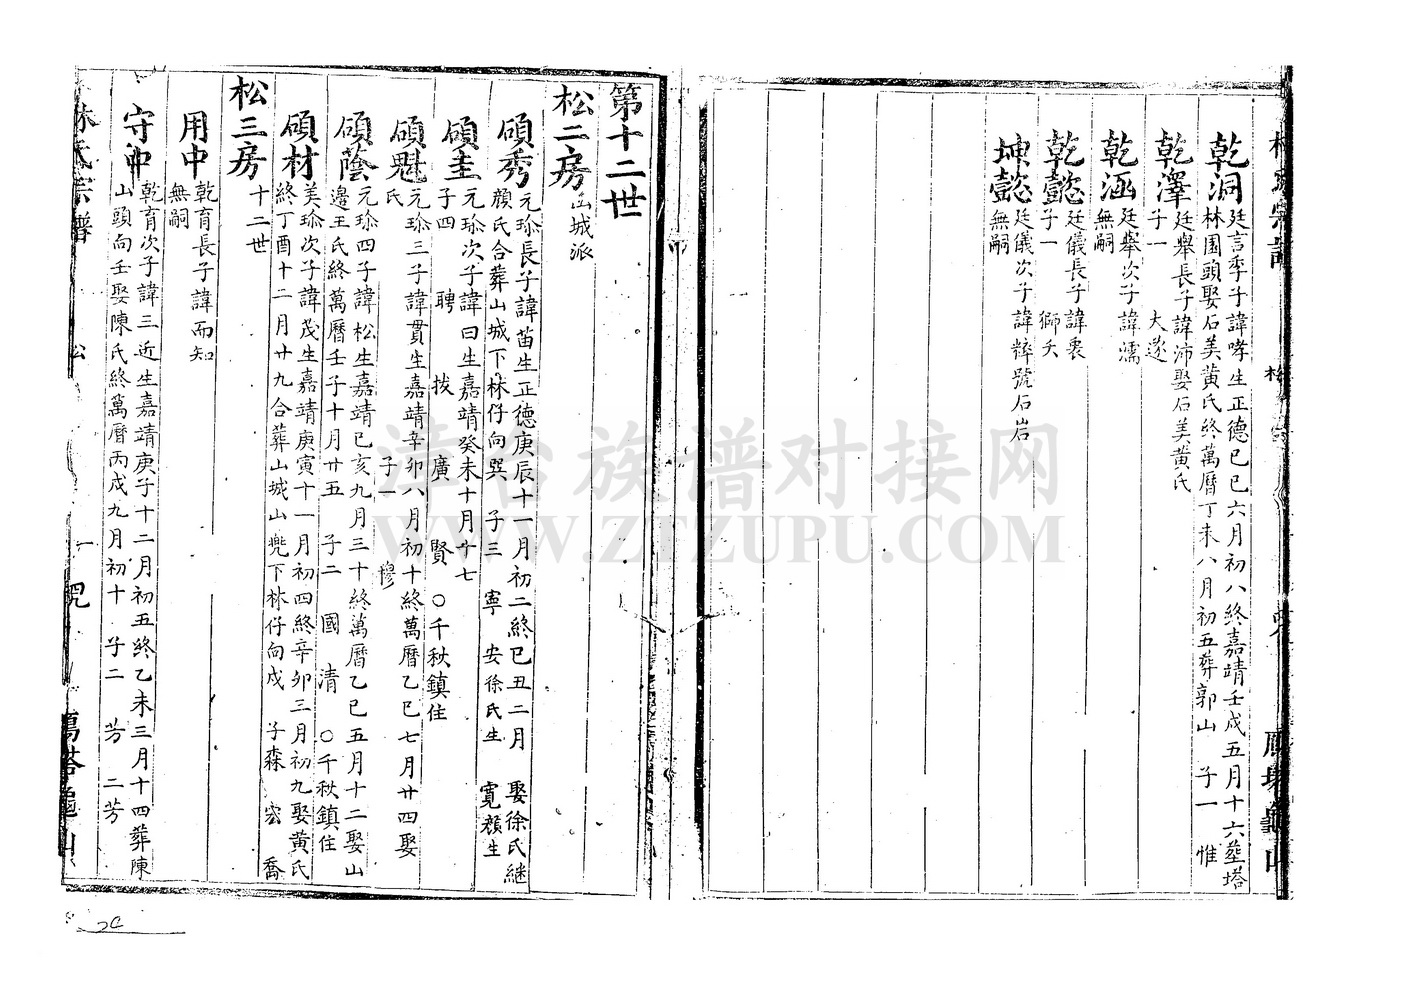 乾洞
廷言季子諱哮生正德已巳六月初八終嘉靖壬戌五月十六塟塔
林園頭娶石美黃氏終萬曆丁未八月初五葬郭山 子一 惟
乾澤
廷舉長子諱沛娶石美黃氏
子一 大遂
乾涵
廷舉次子諱濡
無嗣
乾懿
廷儀長子諱裹
子一 獅夭
坤懿
廷儀次子諱粹號石岩
無嗣
第十二世
松二房 山城派
碩秀
元珎長子諱苗生正德庚辰十一月初二終已丑二月 娶徐氏継
顏氏合葬山城下林仔向巽 子三 寧 安徐氏生 寬顏生
碩圭
元珎次子諱曰生嘉靖癸未十月廿七
子四 聘 拔 廣 賢 ○千秋鎮住
碩魁
元珎三子諱貫生嘉靖辛卯八月初十終萬曆乙巳七月廿四娶
氏 子一 穆
碩蔭
元珎四子諱松生嘉靖已亥九月三十終萬曆乙巳五月十二娶山
邊王氏終萬曆壬子十月廿五 子二 國 清 ○千秋鎮住
碩材
美珎次子諱茂生嘉靖庚寅十一月初四終辛卯三月初九娶黃氏
終丁酉十二月廿九合葬山城山兠下林仔向戌 子森 宏 喬
松三房 十二世
用中
乾育長子諱而知
無嗣
守中
乾育次子諱三近生嘉靖庚子十二月初五終乙未三月十四葬陳
山頭向壬娶陳氏終萬曆丙戌九月初十 子二 芳 二芳
林氏宗譜 松 一 萬塔龜山
漳台族谱对接网
WWW.ZTZUPU.COM